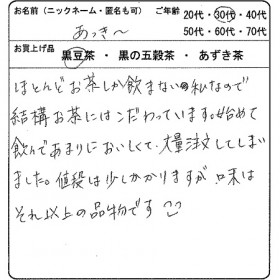 お名前（ニックネーム・匿名も可） ご年齢 20代・30代・40代
あっき～ 50代・60代・70代
お買上げ品 黒豆茶・黒の五穀茶・あずき茶
ほとんどお茶しか飲まない私なので
結構お茶にはこだわっています。始めて
飲んであまりにおいしくて、大量注文してしまい
ました。値段は少しかかりますが、味は
それ以上の品物です